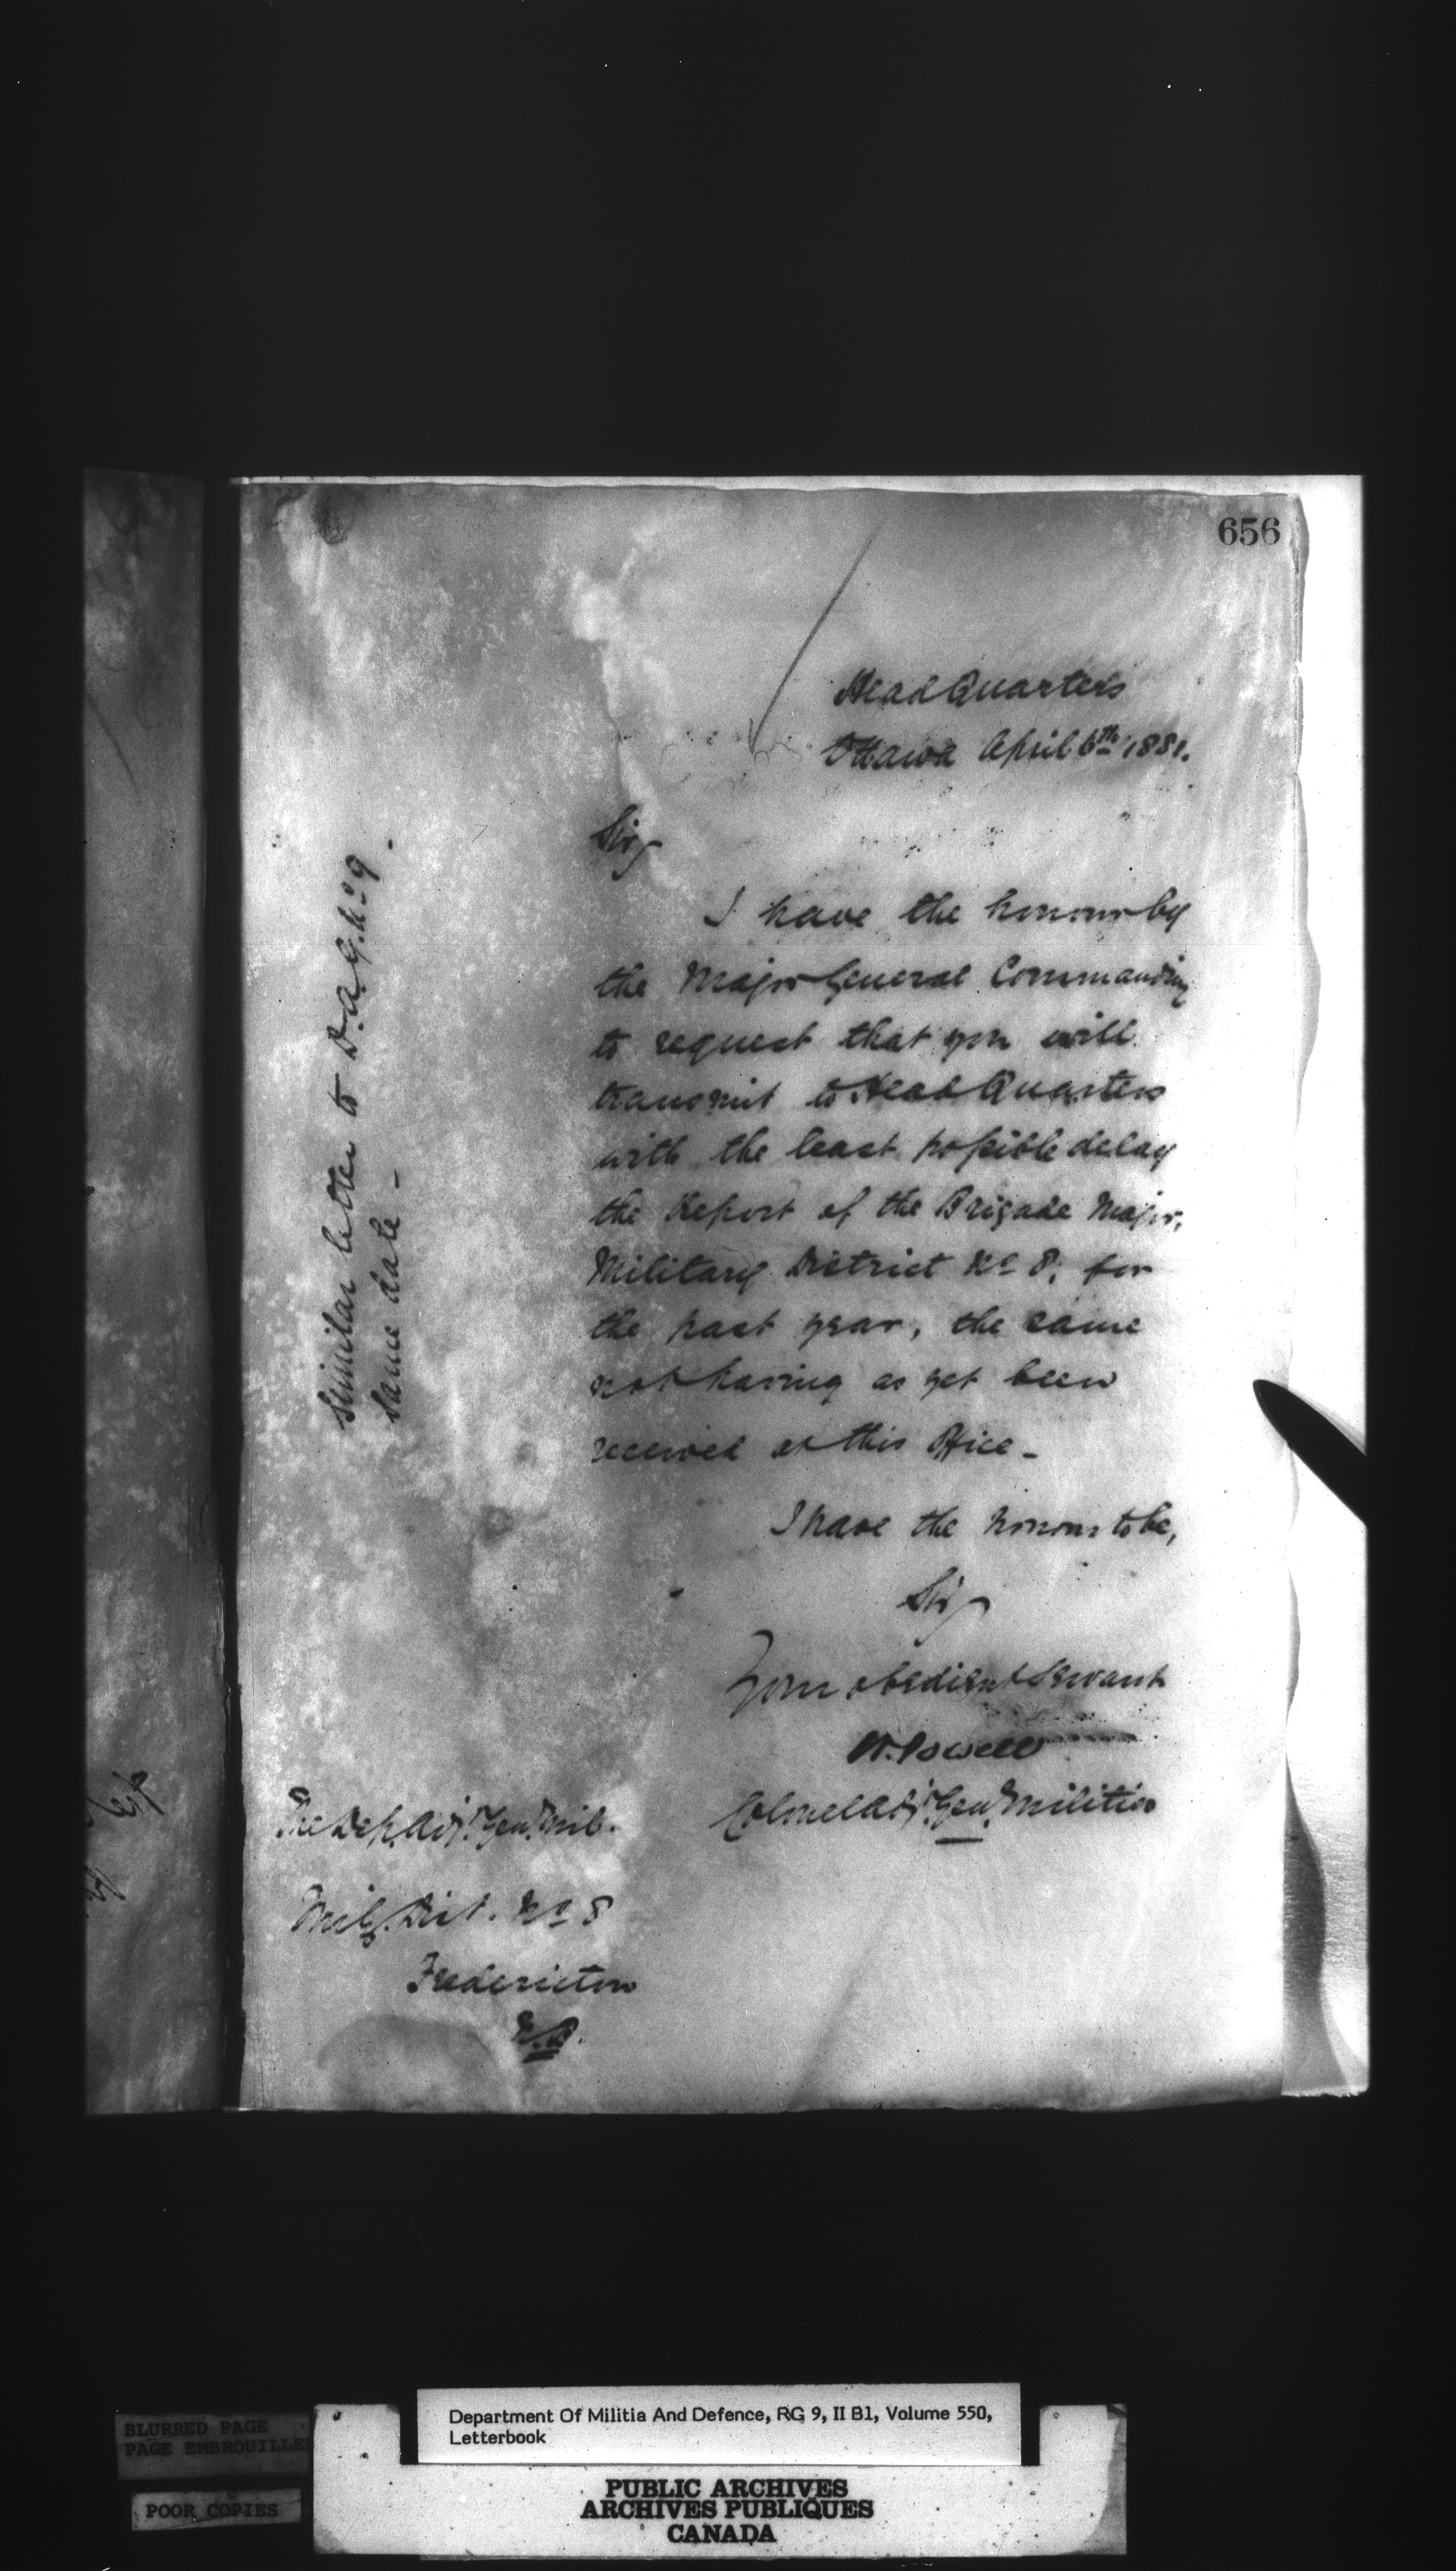 656
Head Quarters
Ottawa April 6th 1881.
Sir,
I have the honour by
the Major General Commanding
to request that you will
transmit to Head Quarters
with the least possible delay
the Report of the Brigade Major,
Military District No 8, for
the past year, the same
not having as yet been
received at this Office –
I have the honour to be,
Sir,
Your obedient Servant
W. Powell
Colonel Adjt. Genl. Militia
The Dep. Adjt. Genl. Mil.
Mily. Dist. No 8
Fredericton
N.B.
Similar letter to D.A.G. No 9
same date –
BLURRED PAGE
PAGE EMBROUILLE
POOR COPIES
Department Of Militia And Defence, RG 9, II B1, Volume 550,
Letterbook
PUBLIC ARCHIVES
ARCHIVES PUBLIQUES
CANADA